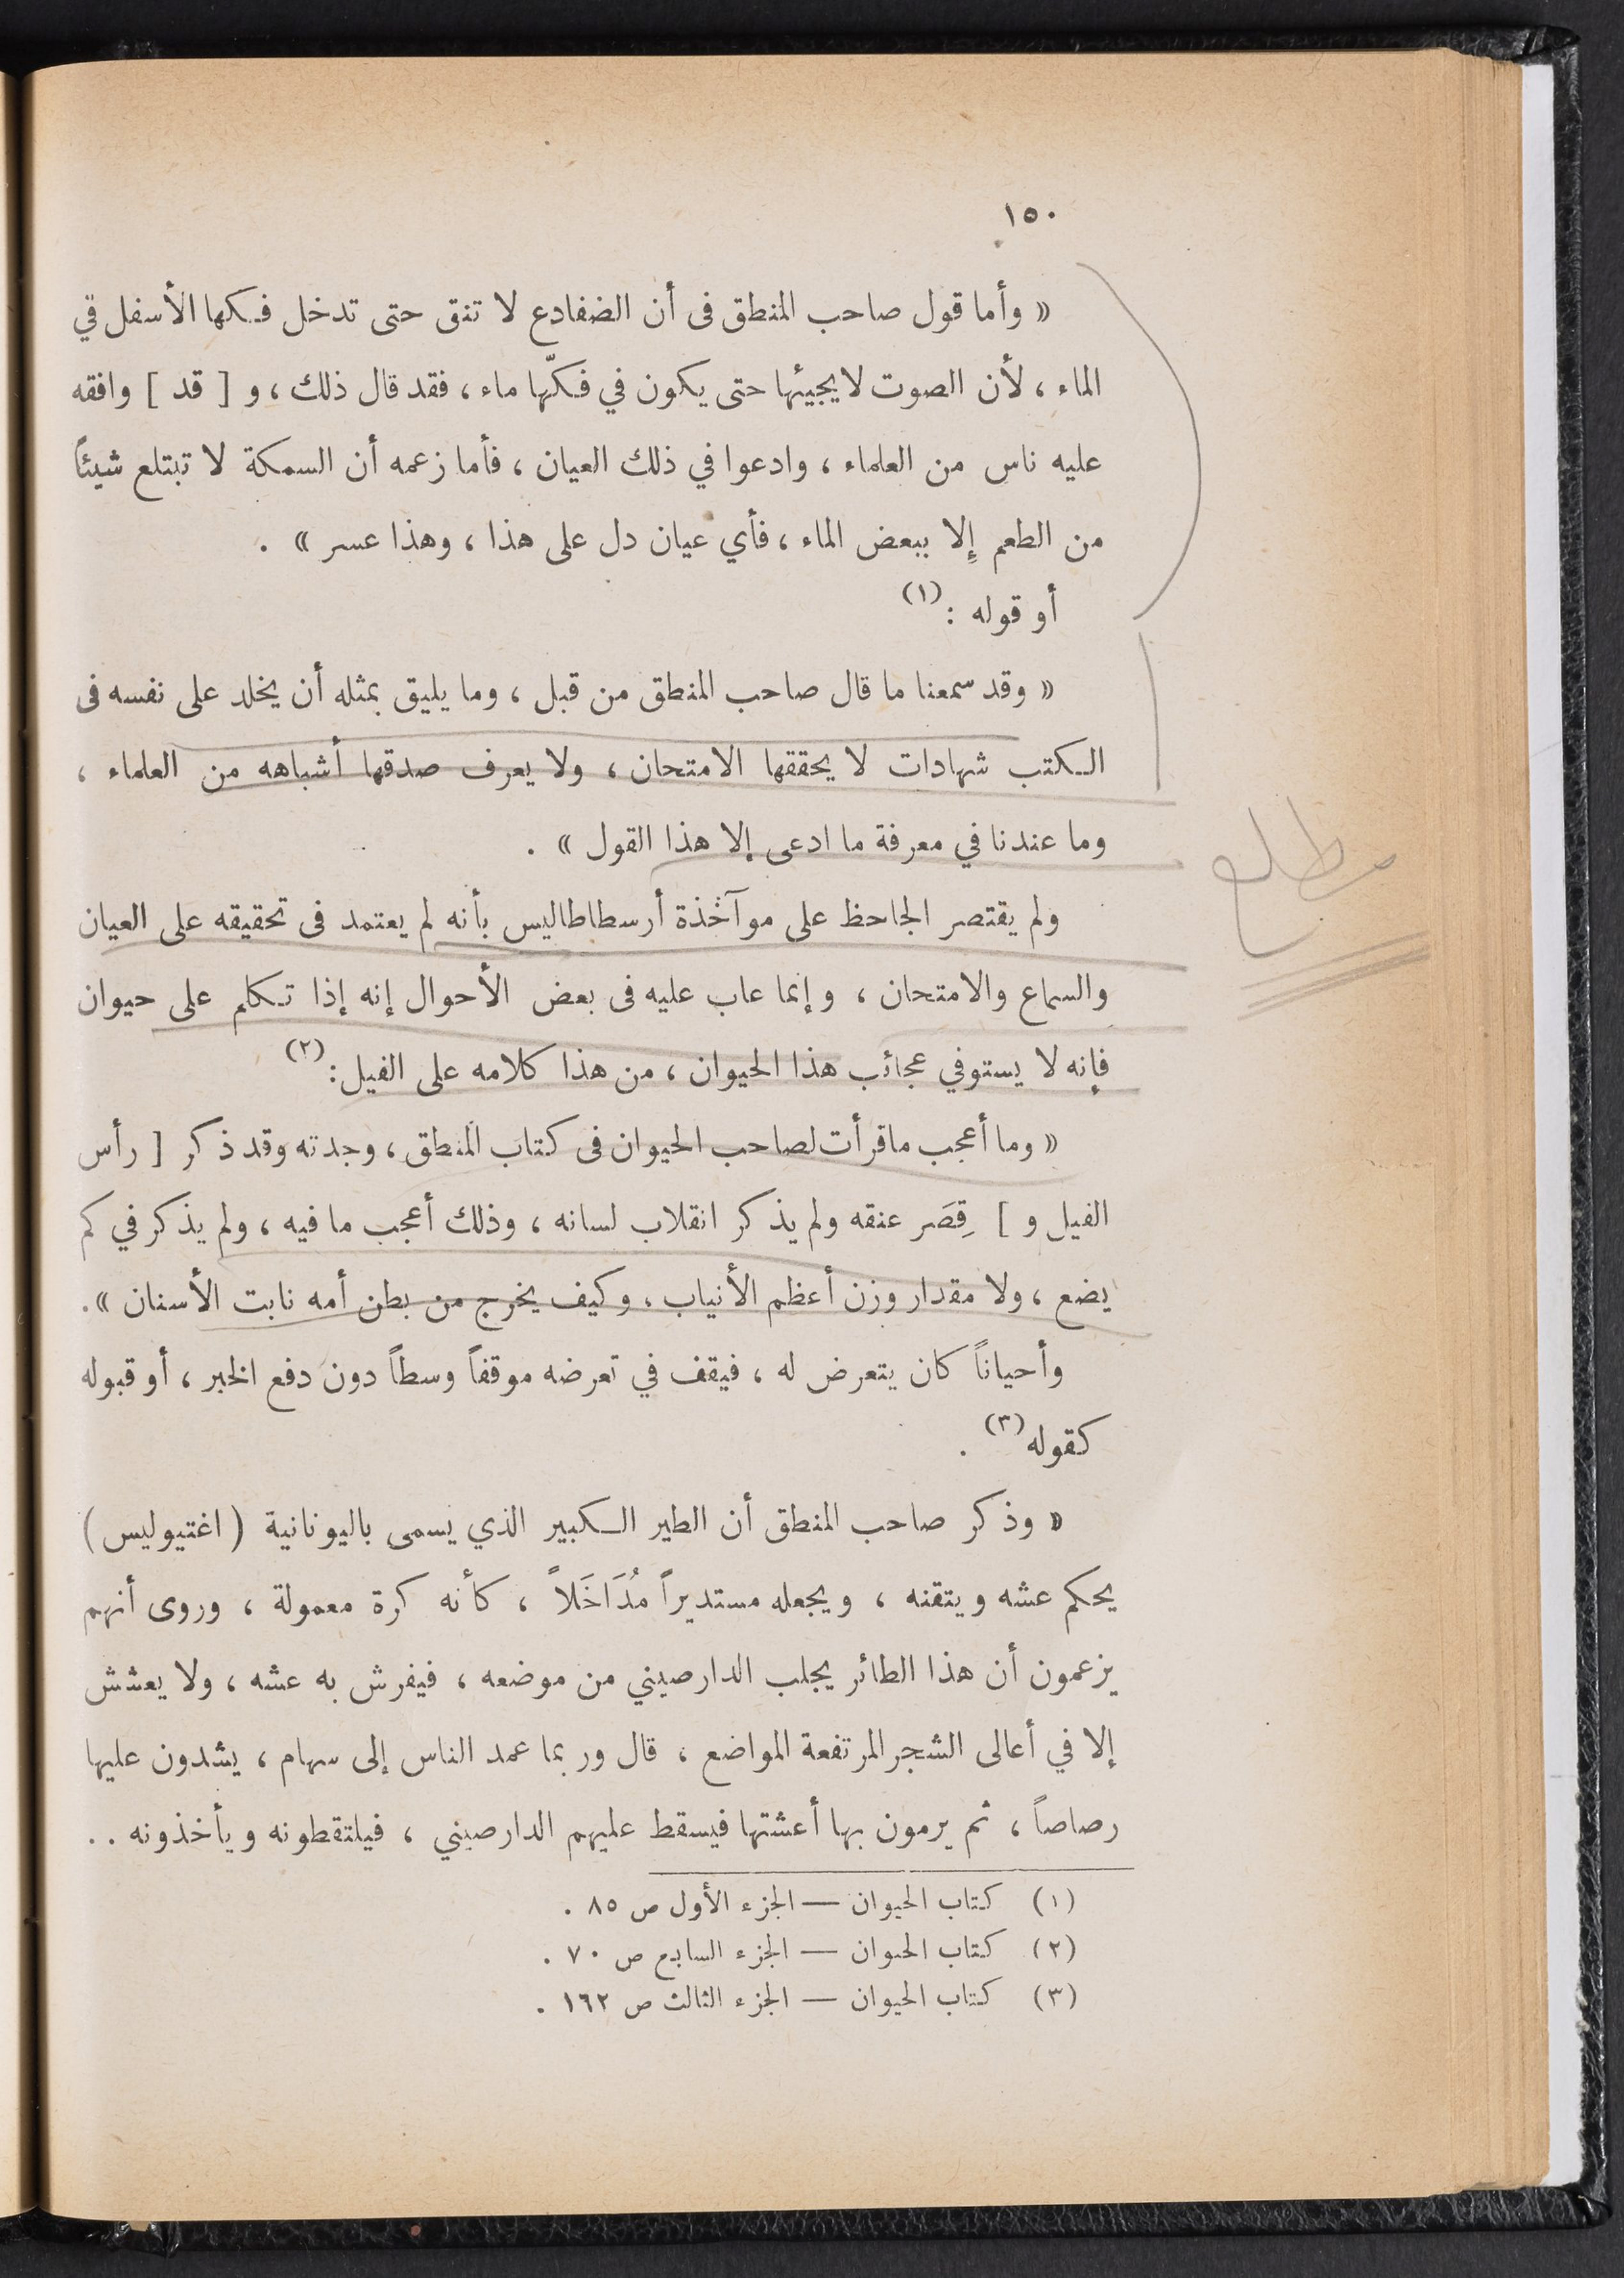 ١٥٠
« وأما قول صاحب المنطق فى أن الضفادع لا تنق حتى تدخل فكها الأسفل في
الماء ، لأن الصوت لا يجيئها حتى يكون في فكّها ماء ، فقد قال ذلك ، و [ قد ] وافقه
عليه ناس من العلماء ، وادعوا في ذلك العيان ، فأما زعمه أن السمكة لا تبتلع شيئاً
من الطعم إِلا ببعض الماء ، فأي عيان دل على هذا ، وهذا عسر » .
أو قوله : (١)
« وقد سمعنا ما قال صاحب المنطق من قبل ، وما يليق بمثله أن يخلد على نفسه فى
الكتب شهادات لا يحققها الامتحان ، ولا يعرف صدقها أشباهه من العلماء ،
وما عندنا في معرفة ما ادعى إلا هذا القول » .
ولم يقتصر الجاحظ على موآخذة أرسطاطاليس بأنه لم يعتمد فى تحقيقه على العيان
والسماع والامتحان ، وإنما عاب عليه فى بعض الأحوال إنه إذا تكلم على حيوان
فإنه لا يستوفي عجائب هذا الحيوان ، من هذا كلامه على الفيل : (٢)
« وما أعجب ماقرأت لصاحب الحيوان فى كتاب المنطق ، وجدته وقد ذكر [ رأس
الفيل و ] قِصَر عنقه ولم يذكر انقلاب لسانه ، وذلك أعجب ما فيه ، ولم يذكر في كم
يضع ، ولا مقدار وزن أعظم الأنياب ، وكيف يخرج من بطن أمه نابت الأسنان » .
وأحياناً كان يتعرض له ، فيقف في تعرضه موقفاً وسطاً دون دفع الخبر ، أو قبوله
كقوله (٣) .
« وذكر صاحب المنطق أن الطير الكبير الذي يسمى باليونانية ( اغتيوليس )
يحكم عشه ويتقنه ، ويجعله مستديراً مُدَاخَلاً ، كأنه كرة معمولة ، وروى أنهم
يزعمون أن هذا الطائر يجلب الدارصيني من موضعه ، فيفرش به عشه ، ولا يعشش
إلا في أعالى الشجر المرتفعة المواضع ، قال وربما عمد الناس إلى سهام ، يشدون عليها
رصاصاً ، ثم يرمون بها أعشتها فيسقط عليهم الدارصيني ، فيلتقطونه ويأخذونه . .
(١) كتاب الحيوان — الجزء الأول ص ٨٥ .
(٢) كتاب الحيوان — الجزء السابع ص ٧٠ .
(٣) كتاب الحيوان — الجزء الثالث ص ١٦٢ .